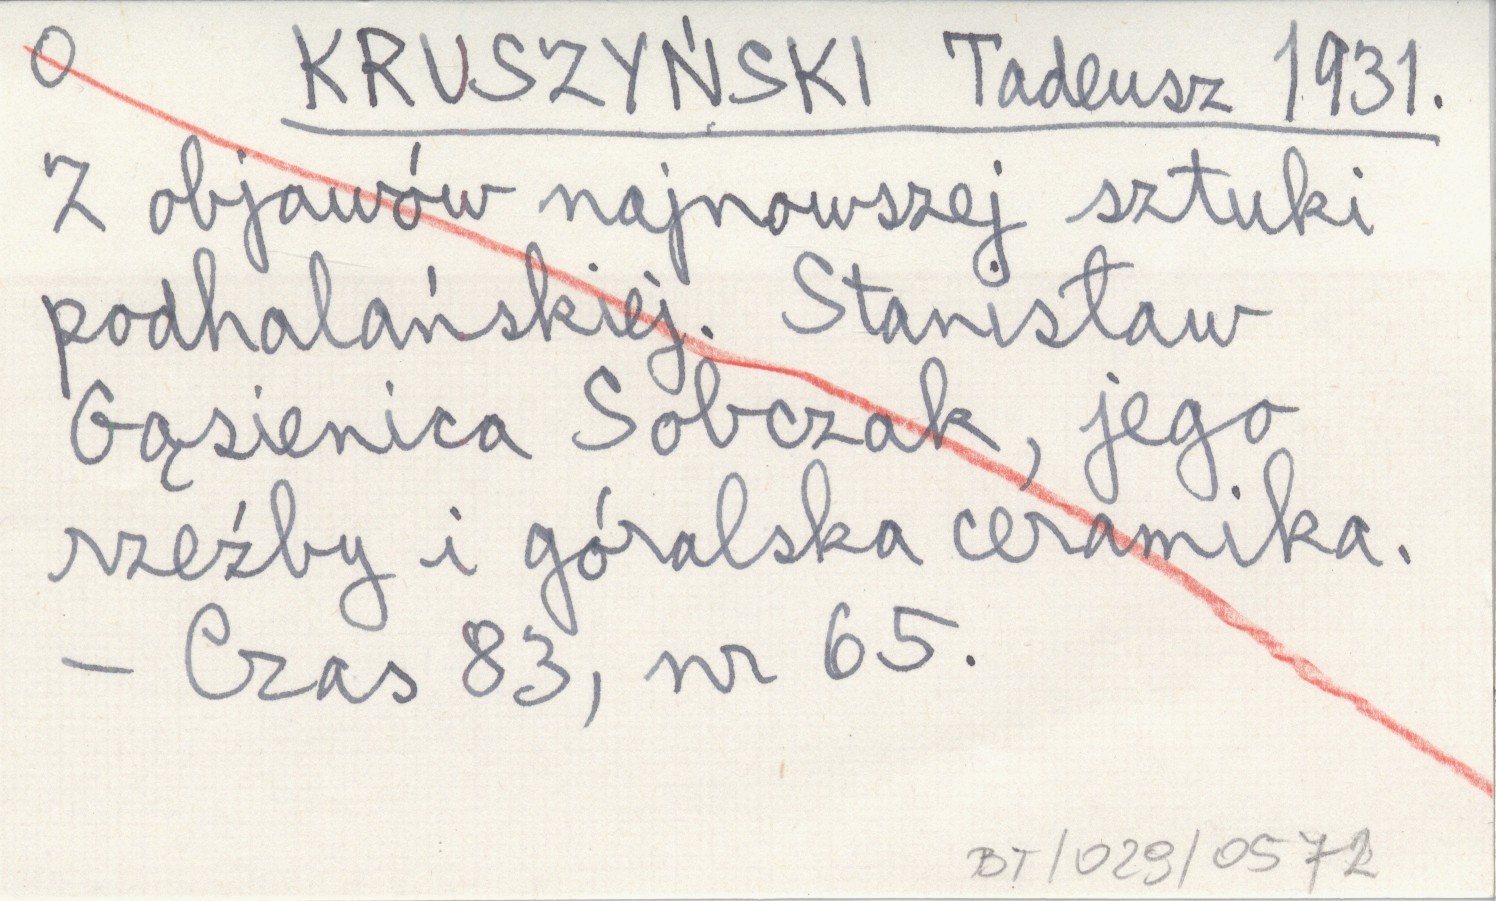 O KRUSZYŃSKI Tadeusz 1931.
Z objawów najnowszej sztuki
podhalańskiej. Stanisław
Gąsienica Sobczak, jego
rzeźby i góralska ceramika.
– Czas 83, nr 65.
BT/029/0572